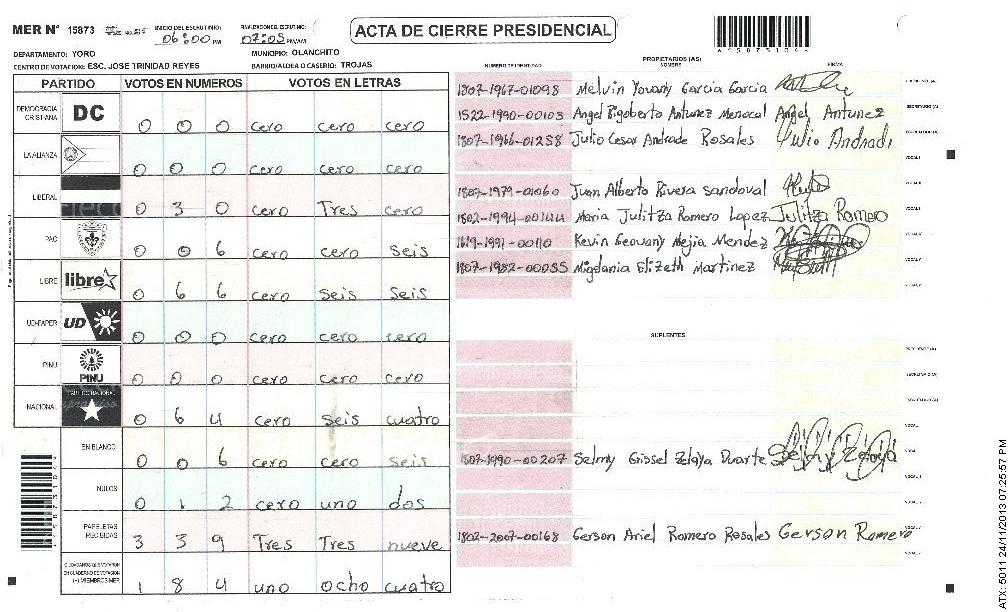 MER N° 15873
INICIO DEL ESCRUTINIO: 06:00 PM
FINALIZACION DEL ESCRUTINIO: 07:05 PM/AM
ACTA DE CIERRE PRESIDENCIAL
DEPARTAMENTO: YORO
MUNICIPIO: OLANCHITO
CENTRO DE VOTACION: ESC. JOSE TRINIDAD REYES
BARRIO/ALDEA O CASERIO: TROJAS
PARTIDO VOTOS EN NUMEROS VOTOS EN LETRAS
DEMOCRACIA CRISTIANA DC 0 0 0 cero cero cero
LA ALIANZA 0 0 0 cero cero cero
LIBERAL 0 3 0 cero Tres cero
PAC 0 0 6 cero cero seis
LIBRE libre 0 6 6 cero seis seis
UD-FAPER UD 0 0 0 cero cero cero
PINU PINU 0 0 0 cero cero cero
NACIONAL 0 6 4 cero seis cuatro
EN BLANCO 0 0 6 cero cero seis
NULOS 0 1 2 cero uno dos
PAPELETAS RECIBIDAS 3 3 9 Tres Tres nueve
CIUDADANOS QUE VOTARON EN CUADERNO DE VOTACION (+) MIEMBROS MER 1 8 4 uno ocho cuatro
PROPIETARIOS (AS)
NUMERO DE IDENTIDAD NOMBRE FIRMA
1807-1967-01098 Melvin Yovany Garcia Garcia
1522-1990-00103 Angel Rigoberto Antunez Menocal Angel Antunez
1807-1966-01258 Julio Cesar Andrade Rosales Julio Andrade
1807-1979-01060 Juan Alberto Rivera Sandoval
1802-1994-00144 Maria Julitza Romero Lopez Julitza Romero
1619-1991-00110 Kevin Geovany Mejia Mendez
1807-1982-00055 Migdania Elizeth Martinez
SUPLENTES
1807-1990-00207 Selmy Grissel Zelaya Duarte Selmy Zelaya
1802-2007-00168 Gerson Ariel Romero Rosales Gerson Romero
ATX: 5011 24/11/2013 07:25:57 PM